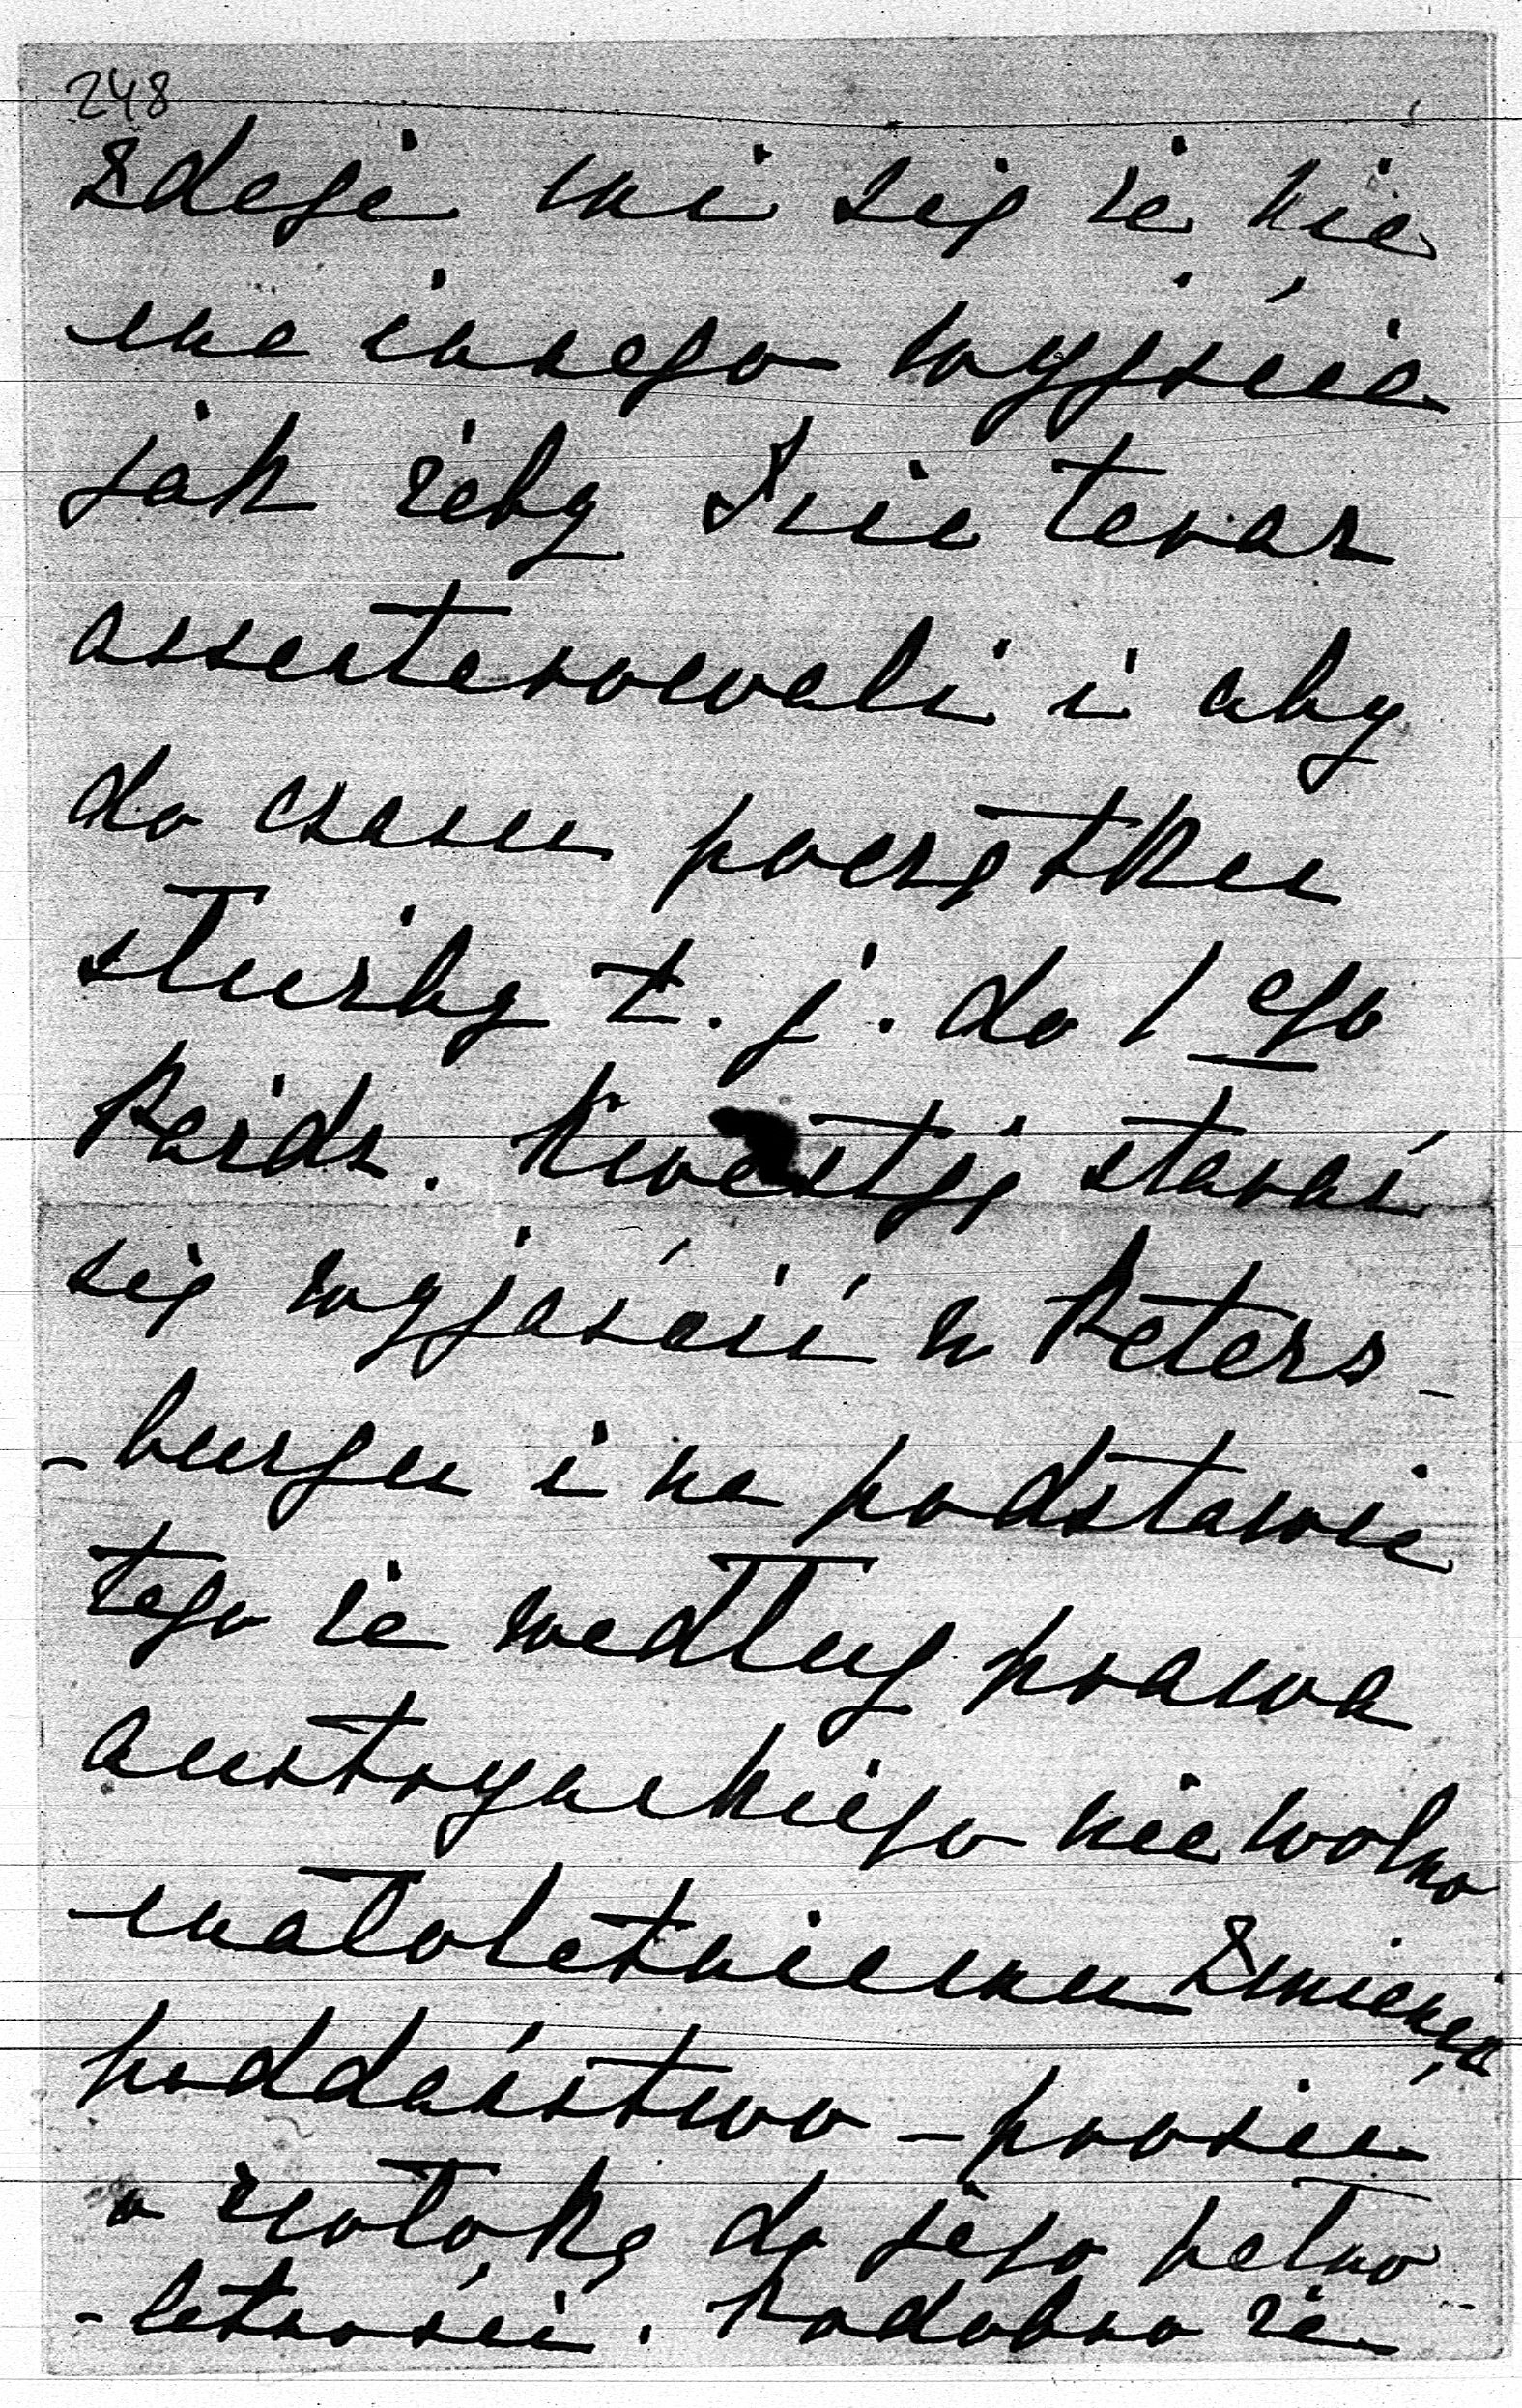 248
Zdaje mi się że nie
ma innego wyjścia
jak żeby teraz
assenterowali i aby
do czasu początku
służby t. j. do 1 ego
Paźdz. kwestję starać
się wyjaśnić w Peters-
-burgu i na podstawie
tego że według prawa
austryackiego nie wolno
małoletniemu zmieniać
poddaństwo – prosić
o zwłokę do jego pełno
-letności. Podobno że